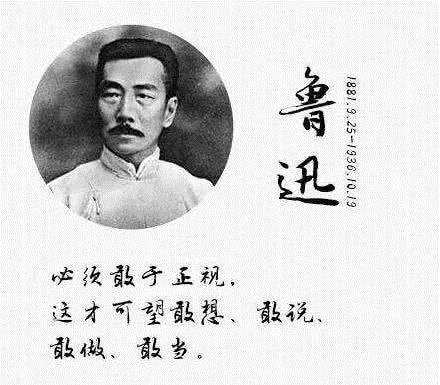 鲁迅
1881.9.25-1936.10.19
必须敢于正视，
这才可望敢想、敢说、
敢做、敢当。